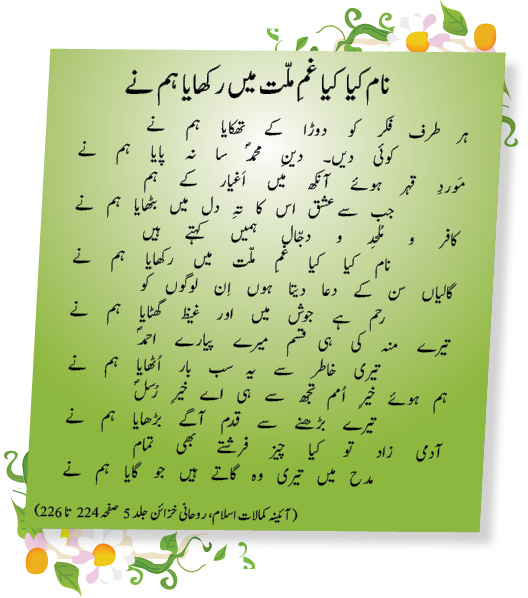 نام کیا کیا غمِ ملّت میں رکھایا ہم نے
ہر طرف فکر کو دوڑا کے تھکایا ہم نے
کوئی دیں۔ دینِ محمدؐ سا نہ پایا ہم نے
مَوردِ قہر ہوئے آنکھ میں اَغیار کے ہم
جب سے عشق اس کا تہِ دل میں بٹھایا ہم نے
کافر و مُلحِد و دجّال ہمیں کہتے ہیں
نام کیا کیا غمِ ملّت میں رکھایا ہم نے
گالیاں سن کے دعا دیتا ہوں اِن لوگوں کو
رحم ہے جوش میں اور غیظ گھٹایا ہم نے
تیرے منہ کی ہی قسم میرے پیارے احمدؐ
تیری خاطر سے یہ سب بار اُٹھایا ہم نے
ہم ہوئے خیرِ اُمم تجھ سے ہی اے خیرِ رُسلؐ
تیرے بڑھنے سے قدم آگے بڑھایا ہم نے
آدمی زاد تو کیا چیز فرشتے بھی تمام
مدح میں تیری وہ گاتے ہیں جو گایا ہم نے
(آئینہ کمالات اسلام، روحانی خزائن جلد 5 صفحہ 224 تا 226)